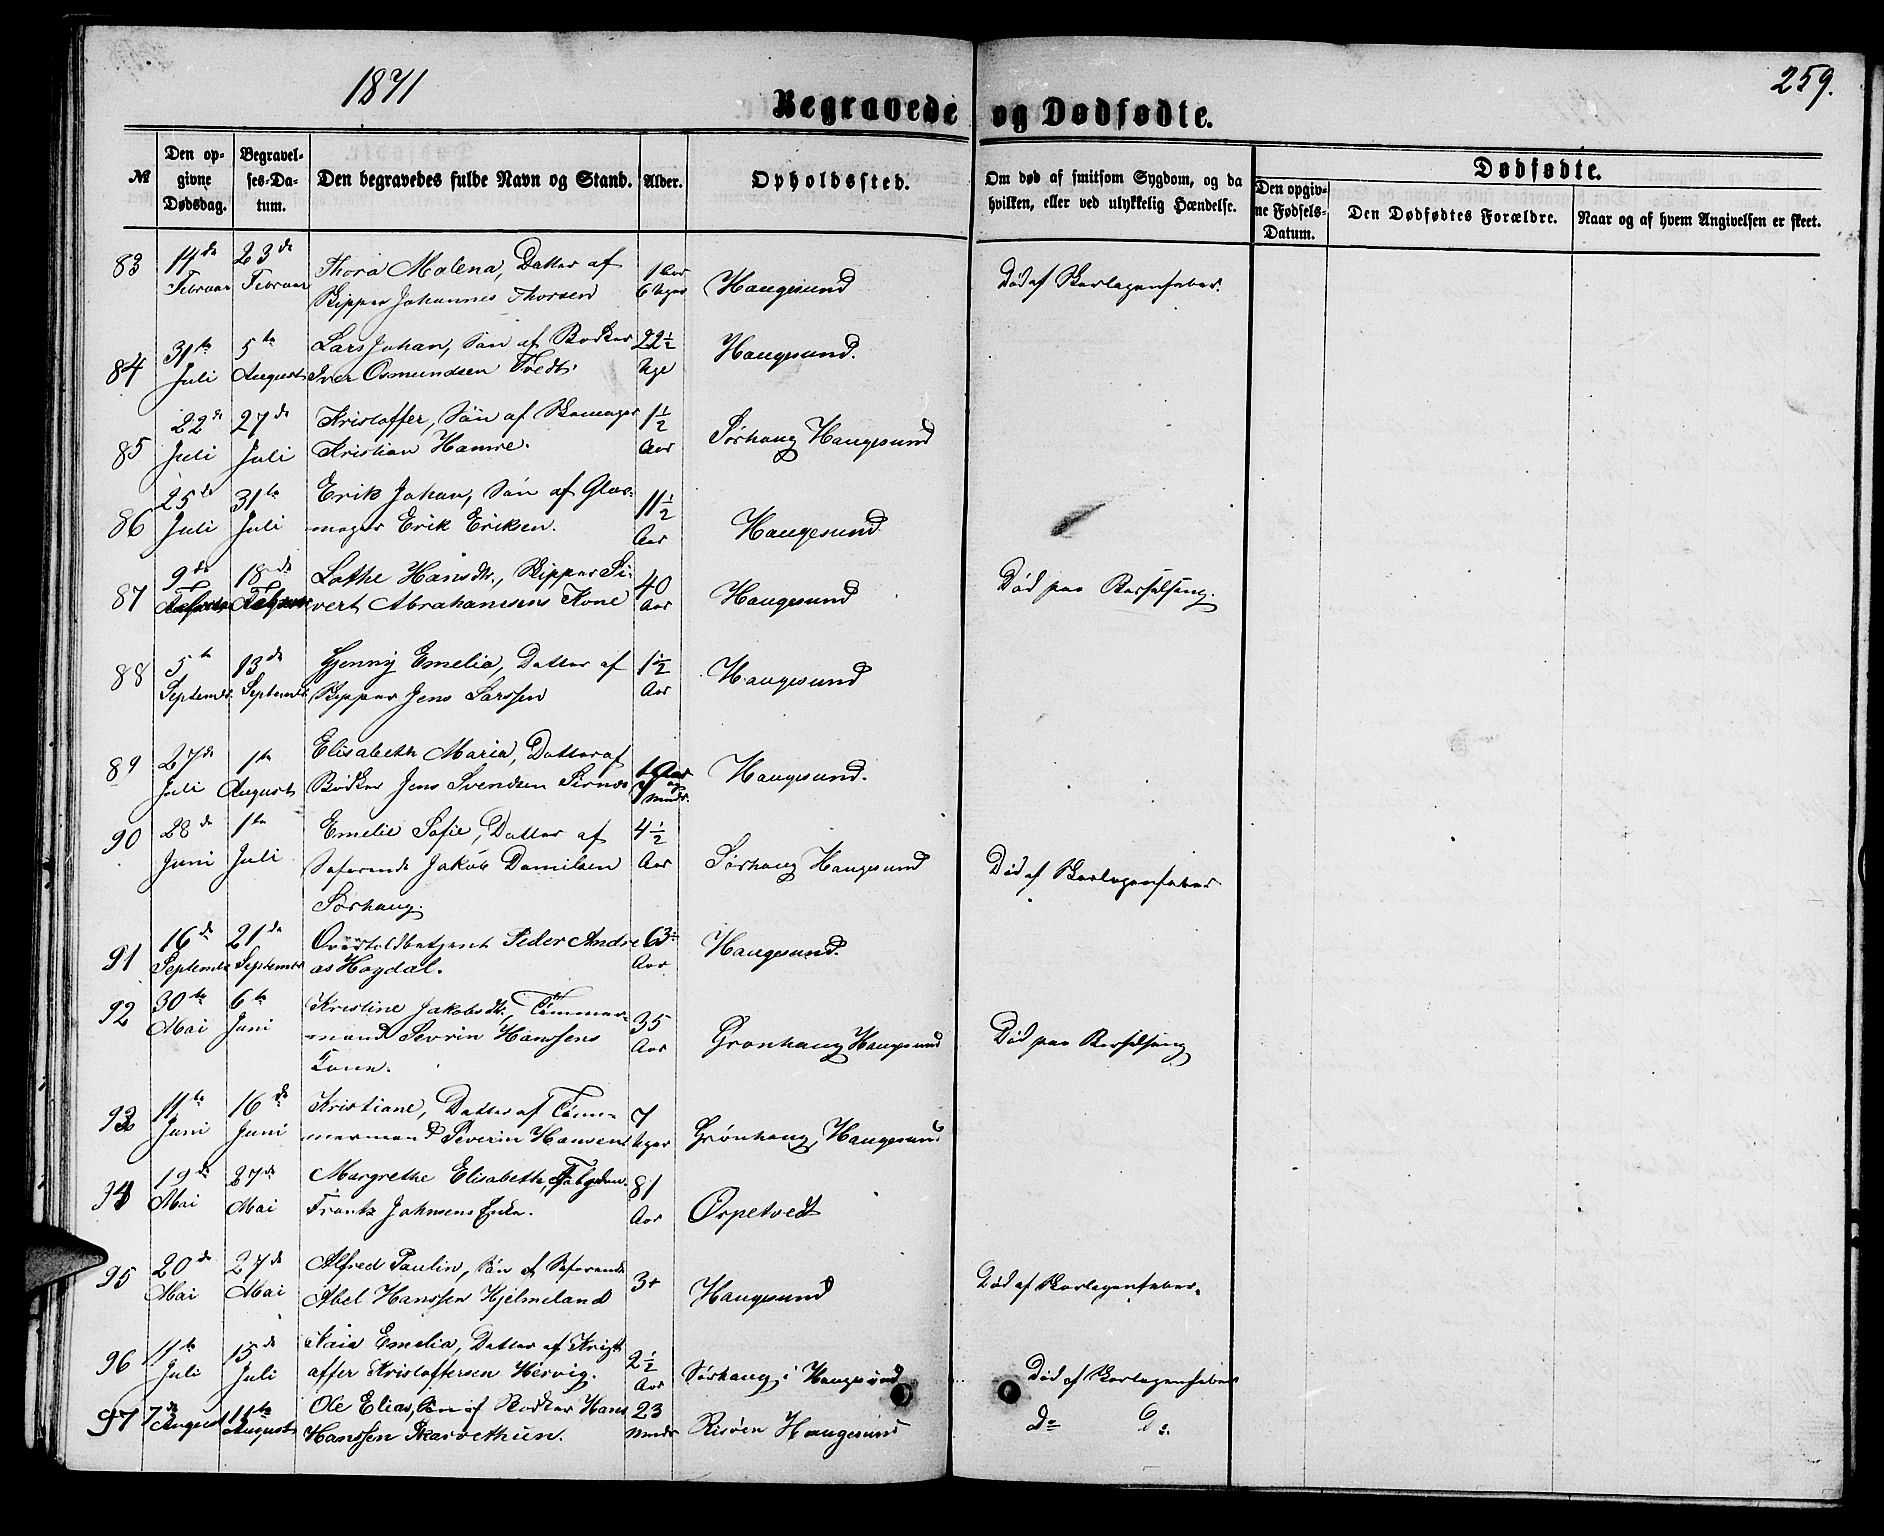 1871
259.
Begravede og Dødfødte.
№
Den opgivne Dødsdag.
Begravelses-Datum.
Den begravedes fulde Navn og Stand.
Alder.
Opholdssted.
Om død af smitsom Sygdom, og da hvilken, eller ved ulykkelig Hændelse.
Dødfødte.
Den opgivne Fødsels-Datum.
Den Dødfødtes Forældre.
Naar og af hvem Angivelsen er skeet.
83 14de Februar 23de Februar Thora Malena, Datter af Skipper Johannes Thorsen 1 Aar 6 Uger Haugesund Død af Skarlagensfeber.
84 31te Juli 5te August Lars Johan, Søn af Bødker Iver Osmundsen Tvedt. 22½ Uge Haugesund.
85 22de Juli 27de Juli Kristoffer, Søn af Skomager Kristian Hamre. 1½ Aar Sørhaug Haugesund
86 25de Juli 31te Juli Erik Johan, Søn af Glasmager Erik Eriksen. 11½ Aar Haugesund
87 9de 18de Lothe Hansdtr., Skipper Sivert Abrahamsens Kone 40 Aar Haugesund Død paa Barselseng.
88 5te Septembr. 13de Septembr. Gjenny Emelia, Datter af Skipper Jens Larssen 1½ Aar Haugesund
89 27de Juli 1te August Elisabeth Maria, Datter af Bødker Jens Svendsen 1 Aar og 7 Mndr. Haugesund.
90 28de Juni 1te Juli Emelie Sofie, Datter af Søfarende Jakob Danielsen Sørhaug. 4½ Aar Sørhaug Haugesund Død af Skarlagensfeber
91 16de Septembr 21de Septembr Overtoldbetjent Peder Andreas Hogdal. 63 Aar Haugesund.
92 30te Mai 6te Juni Kristine Jakobsdtr., Tømmermand Sevrin Hanssens Kone. 35 Aar Grønhaug Haugesund Død paa Barselseng
93 11te Juni 16de Juni Kristiane, Datter af Tømmermand Severin Hansen 7 Uger Grønhaug, Haugesund
94 19de Mai 27de Mai Margrethe Elisabeth, Frantz Johnsens Enke. 81 Aar Ørpetvedt
95 20de Mai 27de Mai Alfred Paulin, Søn af Søfarende Abel Hanssen Hjelmeland 3 Haugesund Død af Skarlagensfeber.
96 11te Juli 15de Juli Emelia, Datter af Kristoffer Kristoffersen Hervig. 2½ Aar Sørhaug i Haugesund Død af Skarlagensfeber
97 7de August 11te August Ole Elias, Søn af Bødker Hans Hanssen Skarvethun. 23 Mndr Risøen Haugesund Do Do.